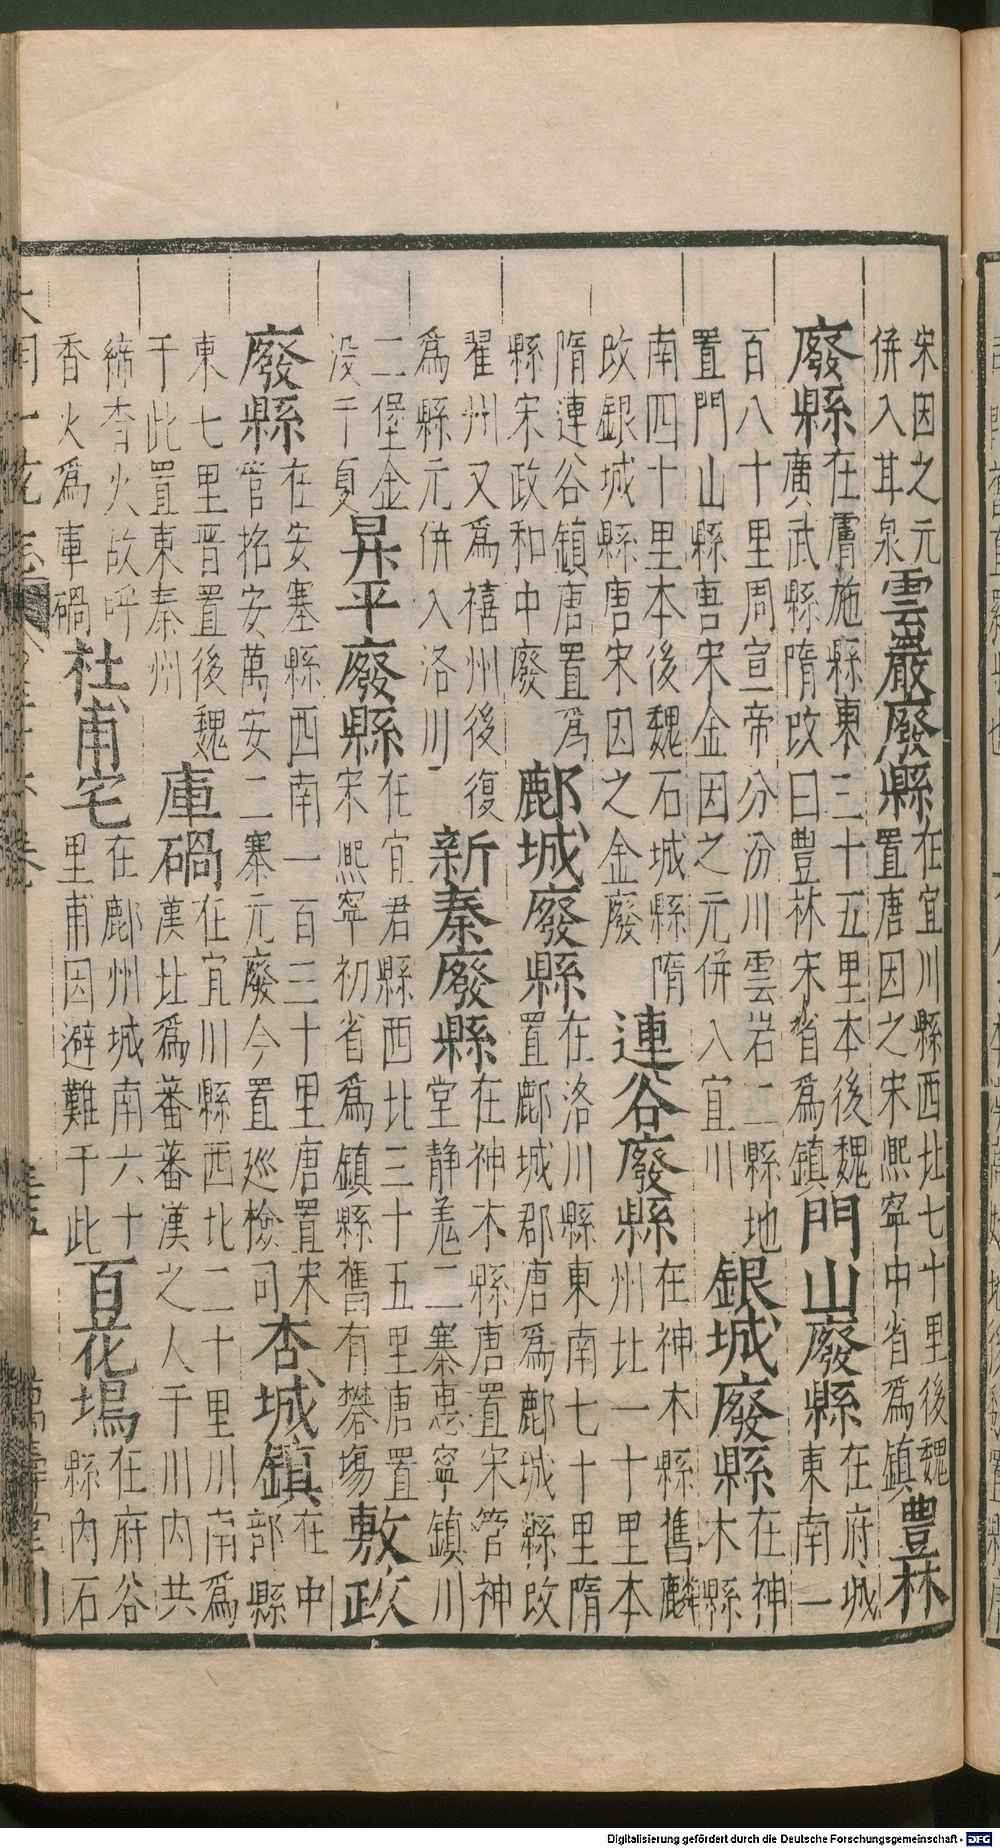 宋因之元
併入耳泉
雲巖廢縣
在宜川縣西北七十里後魏
置唐因之宋熙寧中省為鎮
豊林
廢縣
在膚施縣東三十五里本後魏
廣武縣隋改曰豐林宋省為鎮
門山廢縣
在府城
東南一
百八十里周宣帝分汾川雲岩二縣地
置門山縣唐宋金因之元併入宜川
銀城廢縣
在神
木縣
南四十里本後魏石城縣隋
改銀城縣唐宋因之金廢
連谷廢縣
在神木縣舊麟
州北一十里本
隋連谷鎮唐置為
縣宋政和中廢
鄜城廢縣
在洛川縣東南七十里隋
置鄜城郡唐為鄜城縣改
翟州又為禧州後復
為縣元併入洛川
新秦廢縣
在神木縣唐置宋管神
堂静羌二寨惠寧鎮川
二堡金
没于夏
昇平廢縣
在宜君縣西北三十五里唐置
宋熙寧初省為鎮縣舊有礬場
敷政
廢縣
在安塞縣西南一百三十里唐置宋
管招安萬安二寨元廢今置廵檢司
杏城鎮
在中
部縣
東七里晉置後魏
于此置東秦州
庫碢
在宜川縣西北二十里川南為
漢北為蕃蕃漢之人于川内共
締香火故呼
香火為庫碢
杜甫宅
在鄜州城南六十
里甫因避難于此
百花塢
在府谷
縣内石
大明一統志
萬壽堂刊
Digitalisierung gefördert durch die Deutsche Forschungsgemeinschaft - DFG